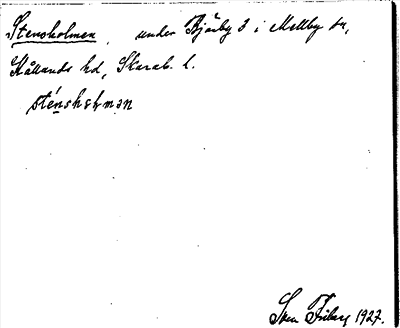 Stensholmen, under Bjärby 3 i Mellby sn,
Kållands hd, Skarab. l.
sténshɵlmən
Sven Friberg 1927.